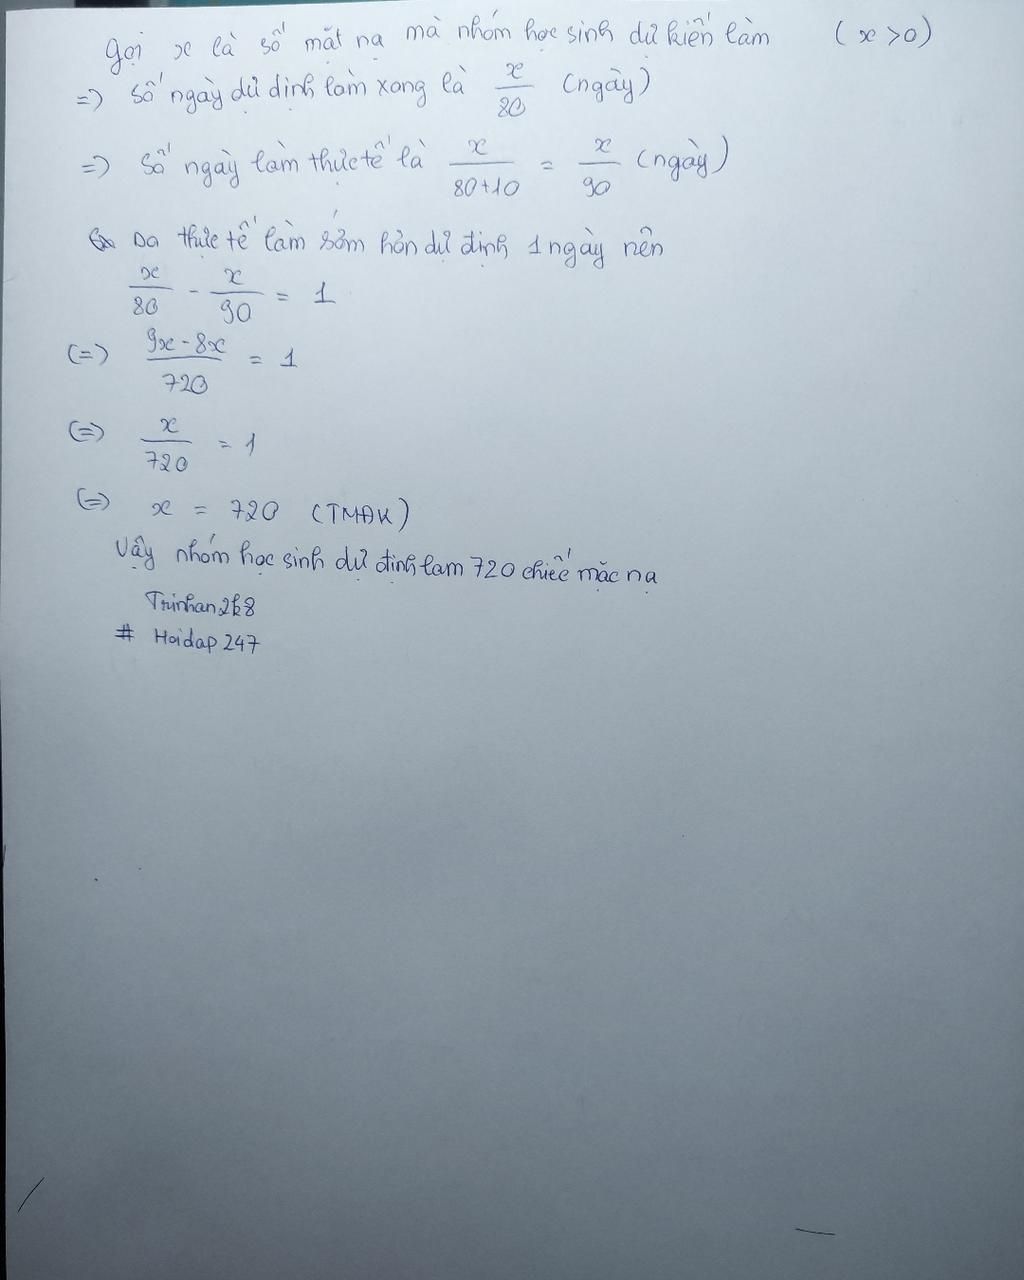 Gọi x là số mặt nạ mà nhóm học sinh dự kiến làm (x >0)
=> Số ngày dự định làm xong là x/80 (ngày)
=> Số ngày làm thực tế là x/80+10 = x/90 (ngày)
Do thực tế làm sớm hơn dự định 1 ngày nên
x/80 - x/90 = 1
(=) 9x - 8x/720 = 1
(=) x/720 = 1
(=) x = 720 (TMĐK)
Vậy nhóm học sinh dự định lam 720 chiếc mặc nạ
Trinhan2k8
# Hoidap247